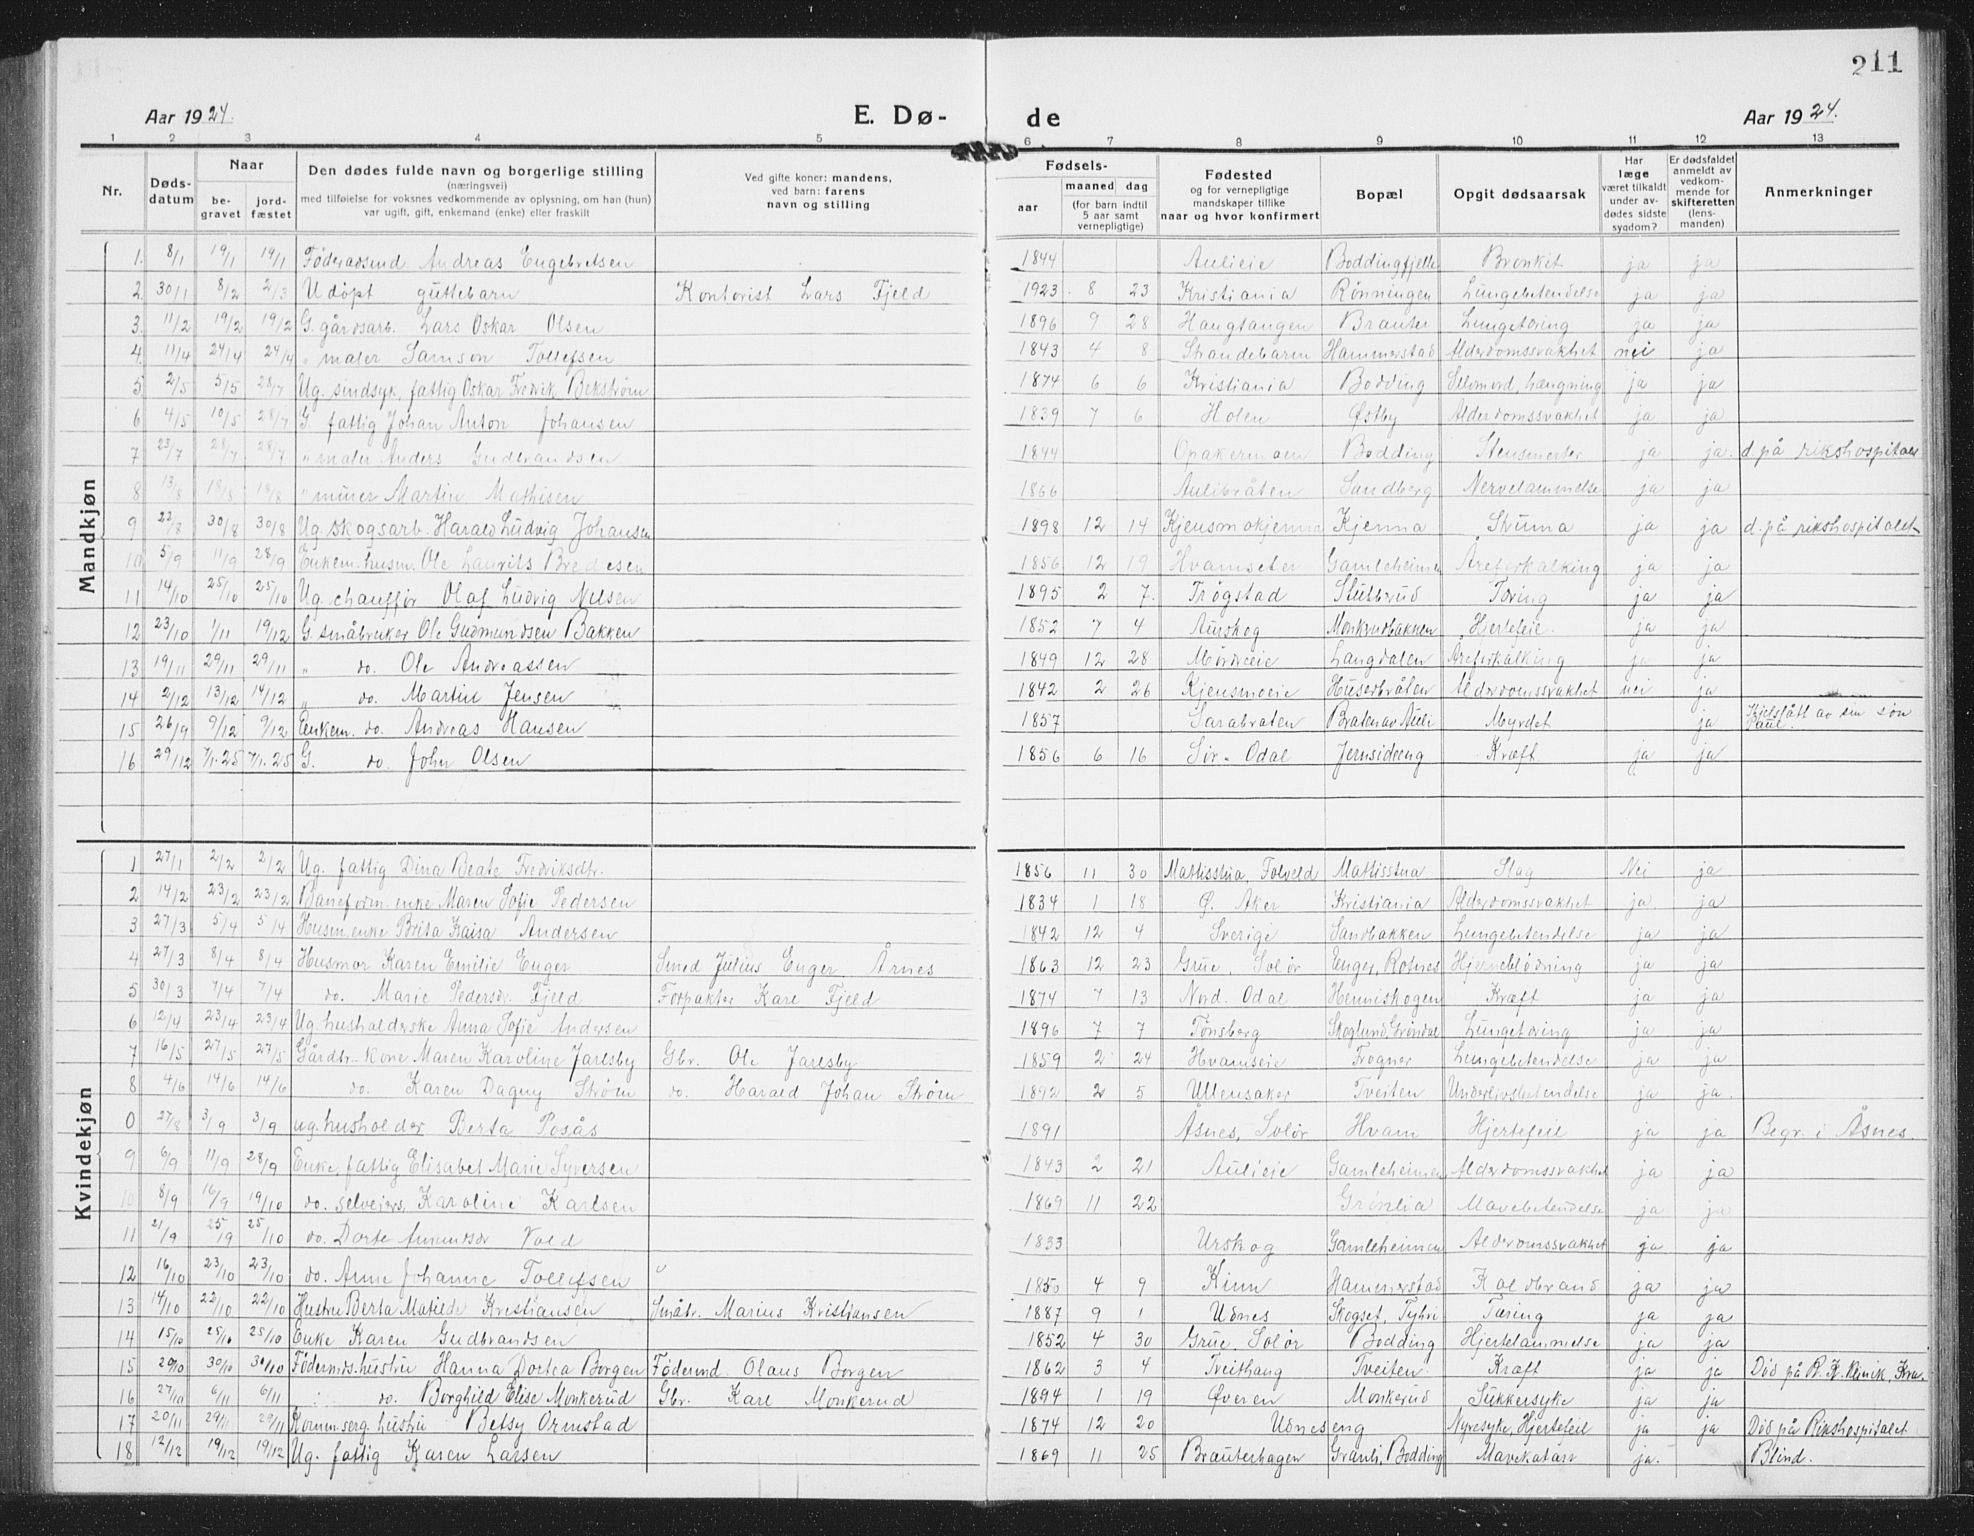 211
Aar 1924. E. Dø- de Aar 1924.
1 2 3 4 5 6 7 8 9 10 11 12 13
Nr. Døds-datum Naar be-gravet jord-fæstet Den dødes fulde navn og borgerlige stilling (næringsvei) med tilføielse for voksnes vedkommende av oplysning, om han (hun) var ugift, gift, enkemand (enke) eller fraskilt Ved gifte koner: mandens, ved barn: farens navn og stilling Fødsels- aar maaned dag (for barn indtil 5 aar samt vernepligtige) Fødested og for vernepligtige mandskaper tillike naar og hvor konfirmert Bopæl Opgit dødsaarsak Har læge været tilkaldt under av-dødes sidste sygdom? Er dødsfaldet anmeldt av vedkom-mende for skifteretten (lens-manden) Anmerkninger
Mandkjøn
1. 8/1 19/1 19/1 Föderaadsmd. Andreas Engebretsen 1844 Aulieie Boddingfjelle Bronkit ja ja
2. 30/1 8/2 2/3 Udöpt guttebarn Kontorist Lars Fjeld 1923. 8 23 Kristiania Rønningen Lungebetendelse ja ja
3. 11/2 19/2 19/2 G. gårdsarb. Lars Oskar Olsen 1896 9 28 Haugtangen Brauter Lungetæring ja ja
4. 11/4 24/4 24/4 " maler Samson Tollefsen 1843 4 8 Strandebarm Hammerstad Alderdomssvakhet nei ja
5 2/5 5/5 28/7 Ug. sindsyk, fattig Oskar Fredrik Bekstrøm 1874 6 6 Kristiania Bodding Selvmord, hængning ja ja
6 4/5 10/5 28/7 G. fattig Johan Anton Johansen 1839 7 6 Holen Østby Alderdomssvakhet ja ja
7 23/7 28/7 28/7 " maler Anders Gudbrandsen 1844 Opakermoen Bodding Stensmerter ja ja. d. på rikshospitalet
8 13/8 18/8 18/8 " murer Martin Mathisen 1866 Aulibråten Sandberg Nervelammelse ja ja
9 22/8 30/8 30/8 Ug. skogsarb. Harald Ludvig Johansen 1898 12 14 Kjensmokjenna Kjenna Struma ja ja d. på rikshospitalet
10 5/9 11/9 28/9 Enkem. husm. Ole Laurits Bredesen 1856 12 19 Hvamseter Gamleheimen Åreforkalking ja ja
11 14/10 25/10 25/10 Ug. chauffør Olaf Ludvig Nilsen 1895 2 7. Trøgstad Stubberud Tæring ja ja
12 23/10 1/11 19/12 G. småbruker Ole Gudmundsen Bakken 1852 7 4 Aurskog Monkrudbakken Hjertefeil. ja ja
13 19/11 29/11 29/11 " do. Ole Andreassen 1849 12 28 Mørdreeie Langdalen Åreforkalking ja ja
14 2/12 13/12 14/12 " do. Martin Jensen 1842 2 26 Kjensmoeie Huserbråten Alderdomssvakhet nei ja
15 26/9 9/12 9/12 Enkem. do. Andreas Hansen 1857 Sarabråten Bråten av Auli Myrdet ja Ihjelslått av sin søn Paul.
16 29/12 7/1.25 7/1.25 G. do. John Olsen 1856 6 16 Sør-Odal Jernsideeng Kræft. ja ja
Kvindekjøn
1 27/1 2/2 2/2 Ug. fattig Dina Beate Fredriksdtr. 1856 11 30 Mattisstua, Folveld Mattisstua Slag Nei ja
2 14/2 23/2 23/2 Baneform. enke Maren Sofie Pedersen 1834 1 18 Ø. Aker Kristiania Alderdomssvakhet ja. ja
3 27/3 5/4 5/4 Husm. enke Brita Kaisa Andersen 1842 12 4 Sverige Sandbakken Lungebetendelse ja ja
4 27/3 8/4 8/4 Husmor Karen Emilie Enger Smed Julius Enger, Årnes 1863 12 23 Grue, Solør Enger, Rotnes Hjerneblødning ja ja
5 30/3 7/4 7/4 do. Marie Pedersdr. Fjeld Forpakter Karl Fjeld 1874 7 13 Nord. Odal Hennishagen Kræft ja ja
6 12/4 23/4 23/4 Ug. husholderske Anna Sofie Andersen 1896 7 7 Tønsberg Skoglund, Grøndal Lungetæring ja ja
7 16/5 27/5 27/5 Gårdbr.-kone Maren Karoline Jarlsby Gbr. Ole Jarlsby 1859 2 24 Hvamseie Frogner Lungebetendelse ja ja
8 4/6 14/6 14/6 do. Karen Dagny Strøm do. Harald Johan Strøm 1892 2 5 Ullensaker Tveiten Underlivsbetendelse ja ja.
0 27/8 3/9 3/9 ug. husholder Berta Posås 1891 Åsnes, Solør Hvam Hjertefeil ja ja Begr. i Åsnes.
9 6/9 11/9 28/9 Enke, fattig Elisabet Marie Syversen 1843 2 21 Aulieie Gamleheimen Alderdomssvakhet ja ja
10 8/9 16/9 19/10 do. selveiers, Karoline Karlsen 1869 11 22 Grønlia Mavebetendelse ja ja
11 21/9 25/9 25/10 do. Dorte Amundsdr Vold 1833 Urskog Gamleheimen Alderdomssvakhet ja ja
12 16/10 23/10 23/10 do. Anne Johanne Tollefsen " 1850 4 9 Kinn Hammerstad Koldbrand ja ja
13 14/10 22/10 22/10 Hustru Berta Matilde Kristiansen Småbr. Marius Kristiansen 1887 9 1 Udnes Skogset, Tyhri Tæring ja ja
14 15/10 25/10 25/10 Enke Karen Gudbrandsen 1852 4 30 Grue, Solør Bodding Hjertelammelse ja ja
15 20/10 30/10 30/10 Föderaads. hustru Hanna Dortea Borgen Föderaad. Olaus Borgen 1862 3 4 Tveithaug Tveiten. Kræft ja ja Död på R. K. klinik, Kra.
16 27/10 6/11 6/11 do. Borghild Elise Monkerud Gbr. Karl Monkerud 1894 1 19 Øveren Monkerud Sukkersyke ja ja
17 20/11 29/11 29/11 Komm.serg. hustru Betsy Ormstad 1874 12 20 Udneseng Nyresyke, Hjertefeil ja ja Död på Rikshospitalet
18 12/12 19/12 19/12 Ug. fattig Karen Larsen 1869 11 25 Brauterhagen Granli, Bodding Mavekatarr ja. ja Blind.